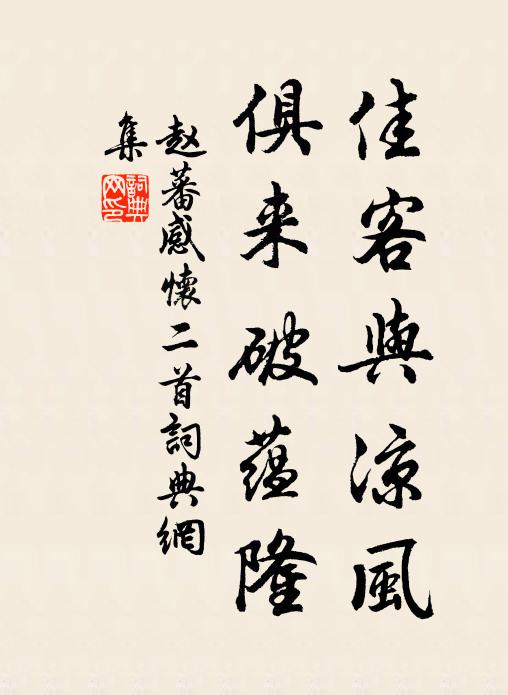 佳客與涼風
俱来破蕴隆
赵蕃感懷二首詞典網
集
詞典網印